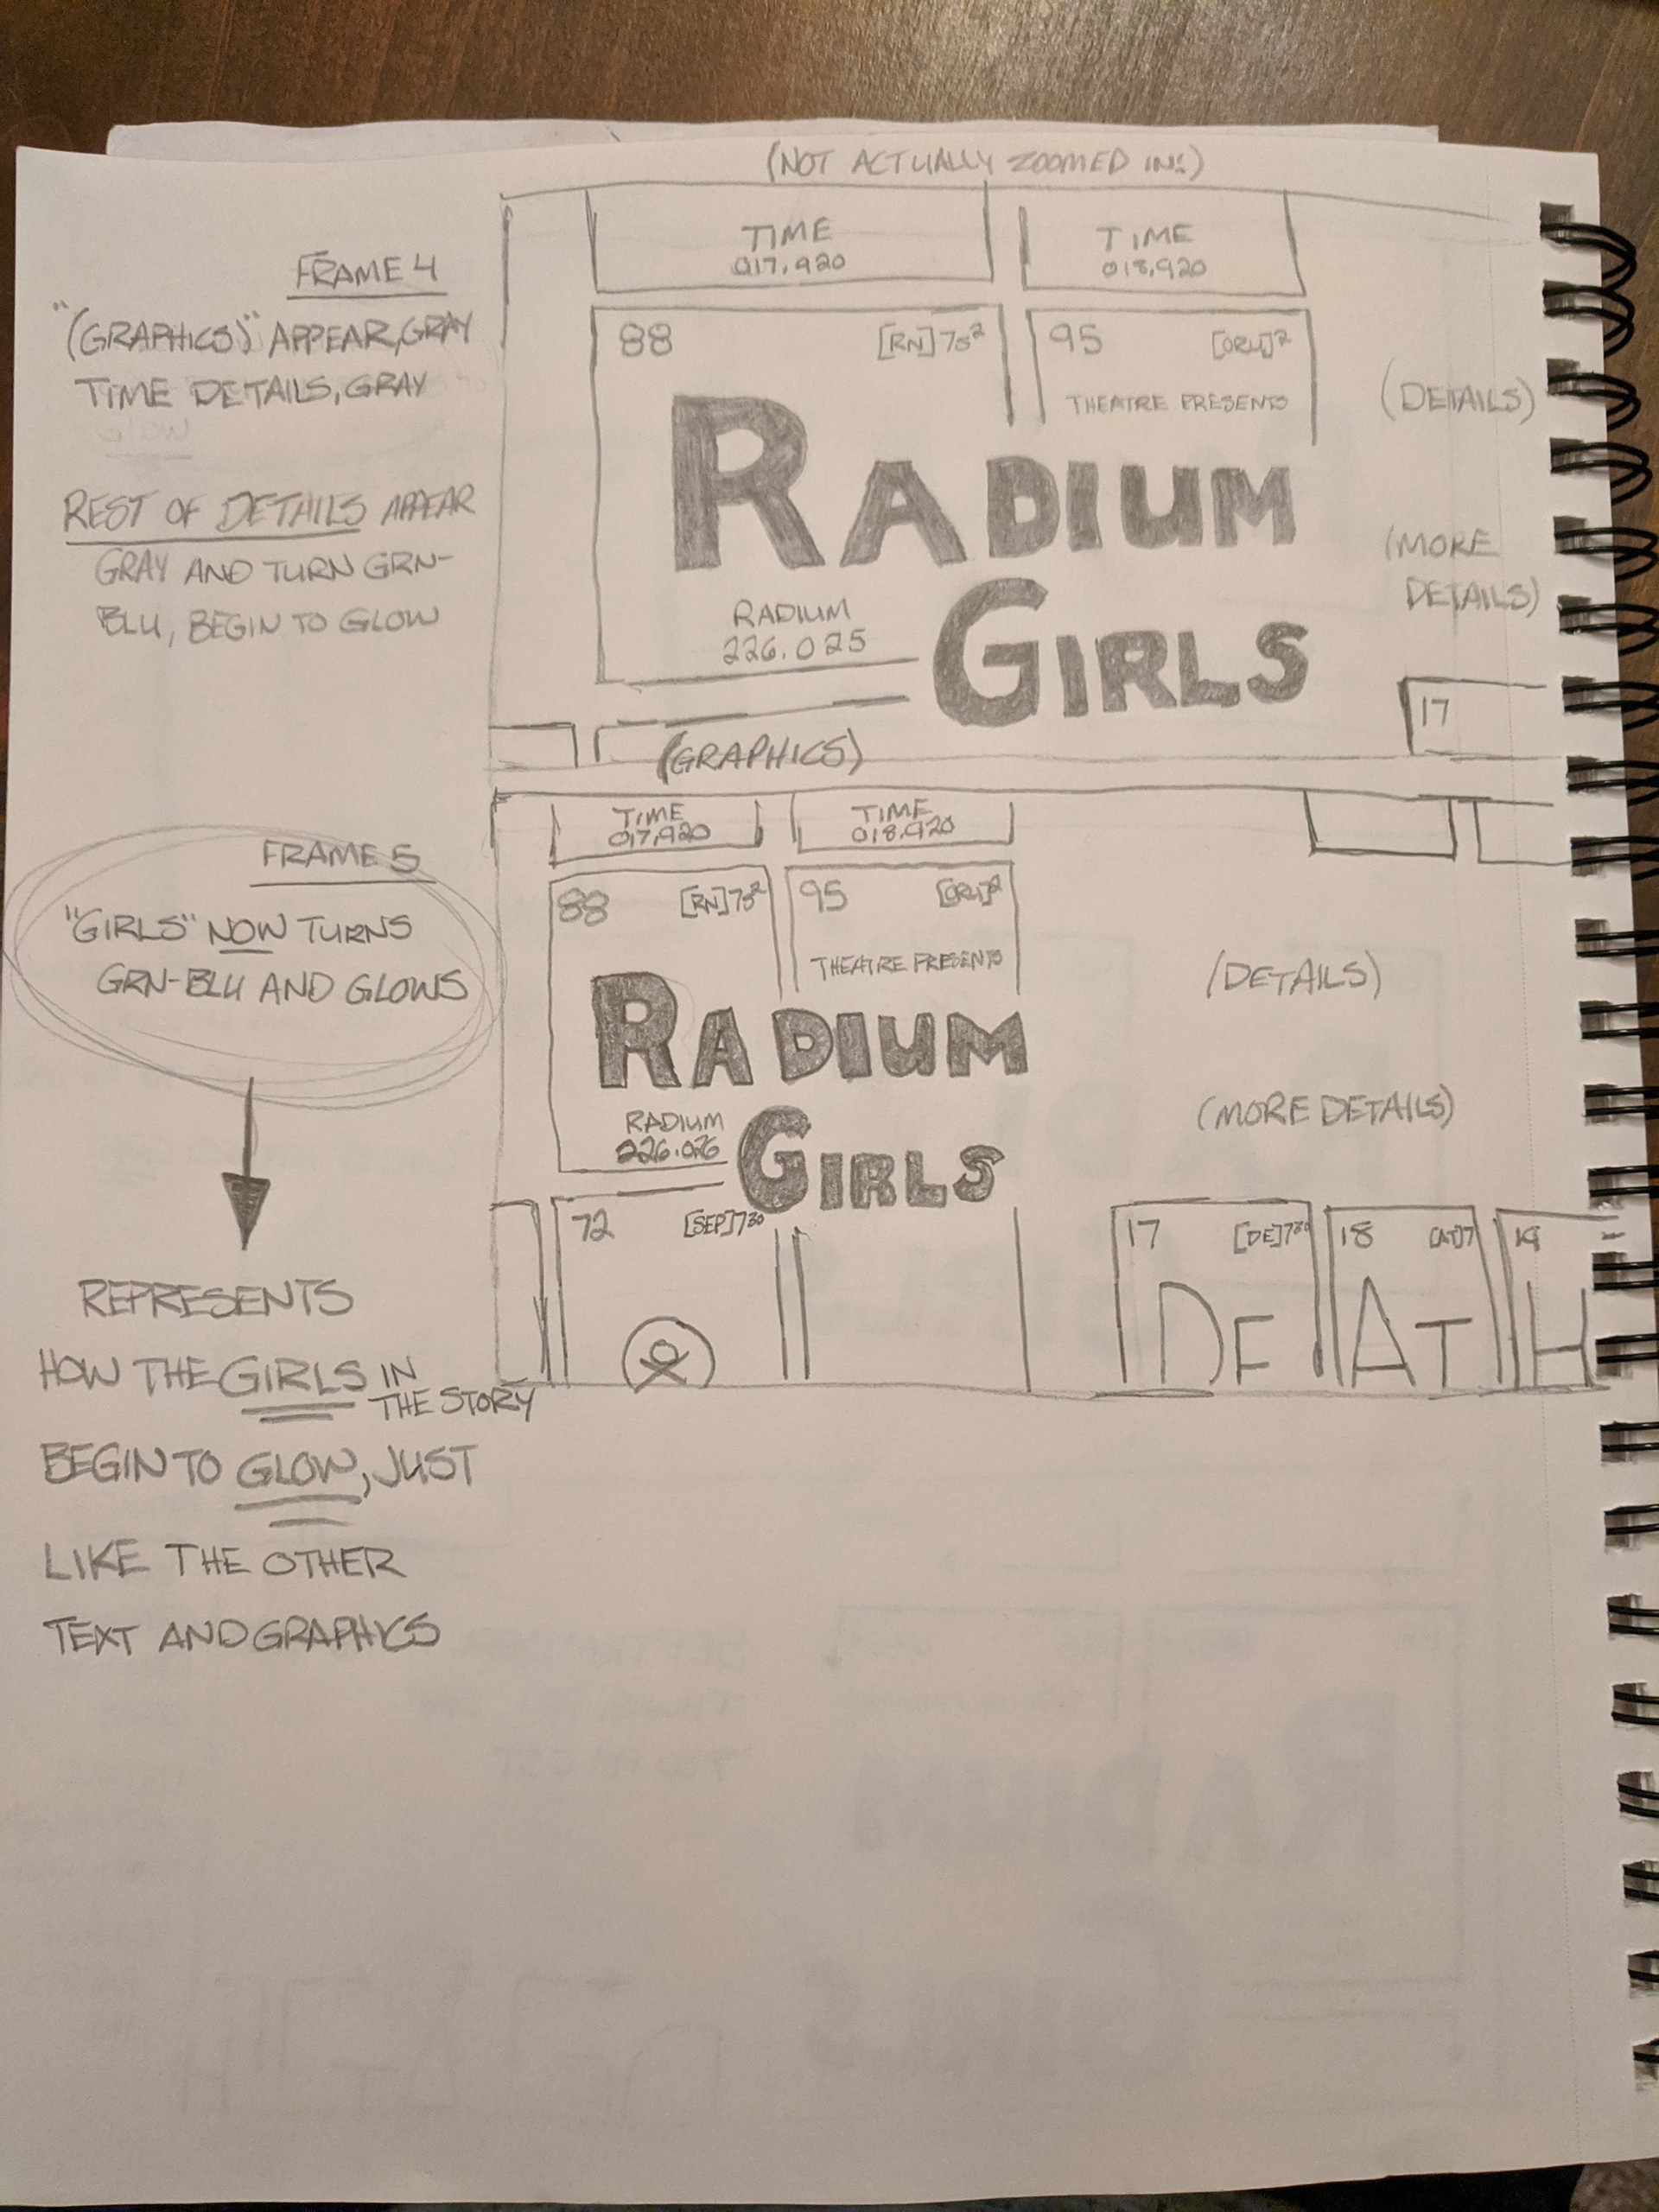 (NOT ACTUALLY ZOOMED IN!)
FRAME 4
"(GRAPHICS)" APPEAR, GRAY
TIME DETAILS, GRAY
GLOW
REST OF DETAILS APPEAR
GRAY AND TURN GRN-
BLU, BEGIN TO GLOW
TIME
017.920
TIME
018.920
88
[RN]7s²
95
[ORU]²
THEATRE PRESENTS
RADIUM
GIRLS
RADIUM
226.025
(DETAILS)
(MORE
DETAILS)
17
(GRAPHICS)
FRAME 5
"GIRLS" NOW TURNS
GRN-BLU AND GLOWS
REPRESENTS
HOW THE GIRLS IN
THE STORY
BEGIN TO GLOW, JUST
LIKE THE OTHER
TEXT AND GRAPHICS
TIME
017.920
TIME
018.920
88
[RN]7s²
95
[ORU]²
THEATRE PRESENTS
RADIUM
GIRLS
RADIUM
226.026
(DETAILS)
(MORE DETAILS)
72
[SEP]7³⁰
17
[DE]7³⁰
DE
18
[AT]7
AT
19
H